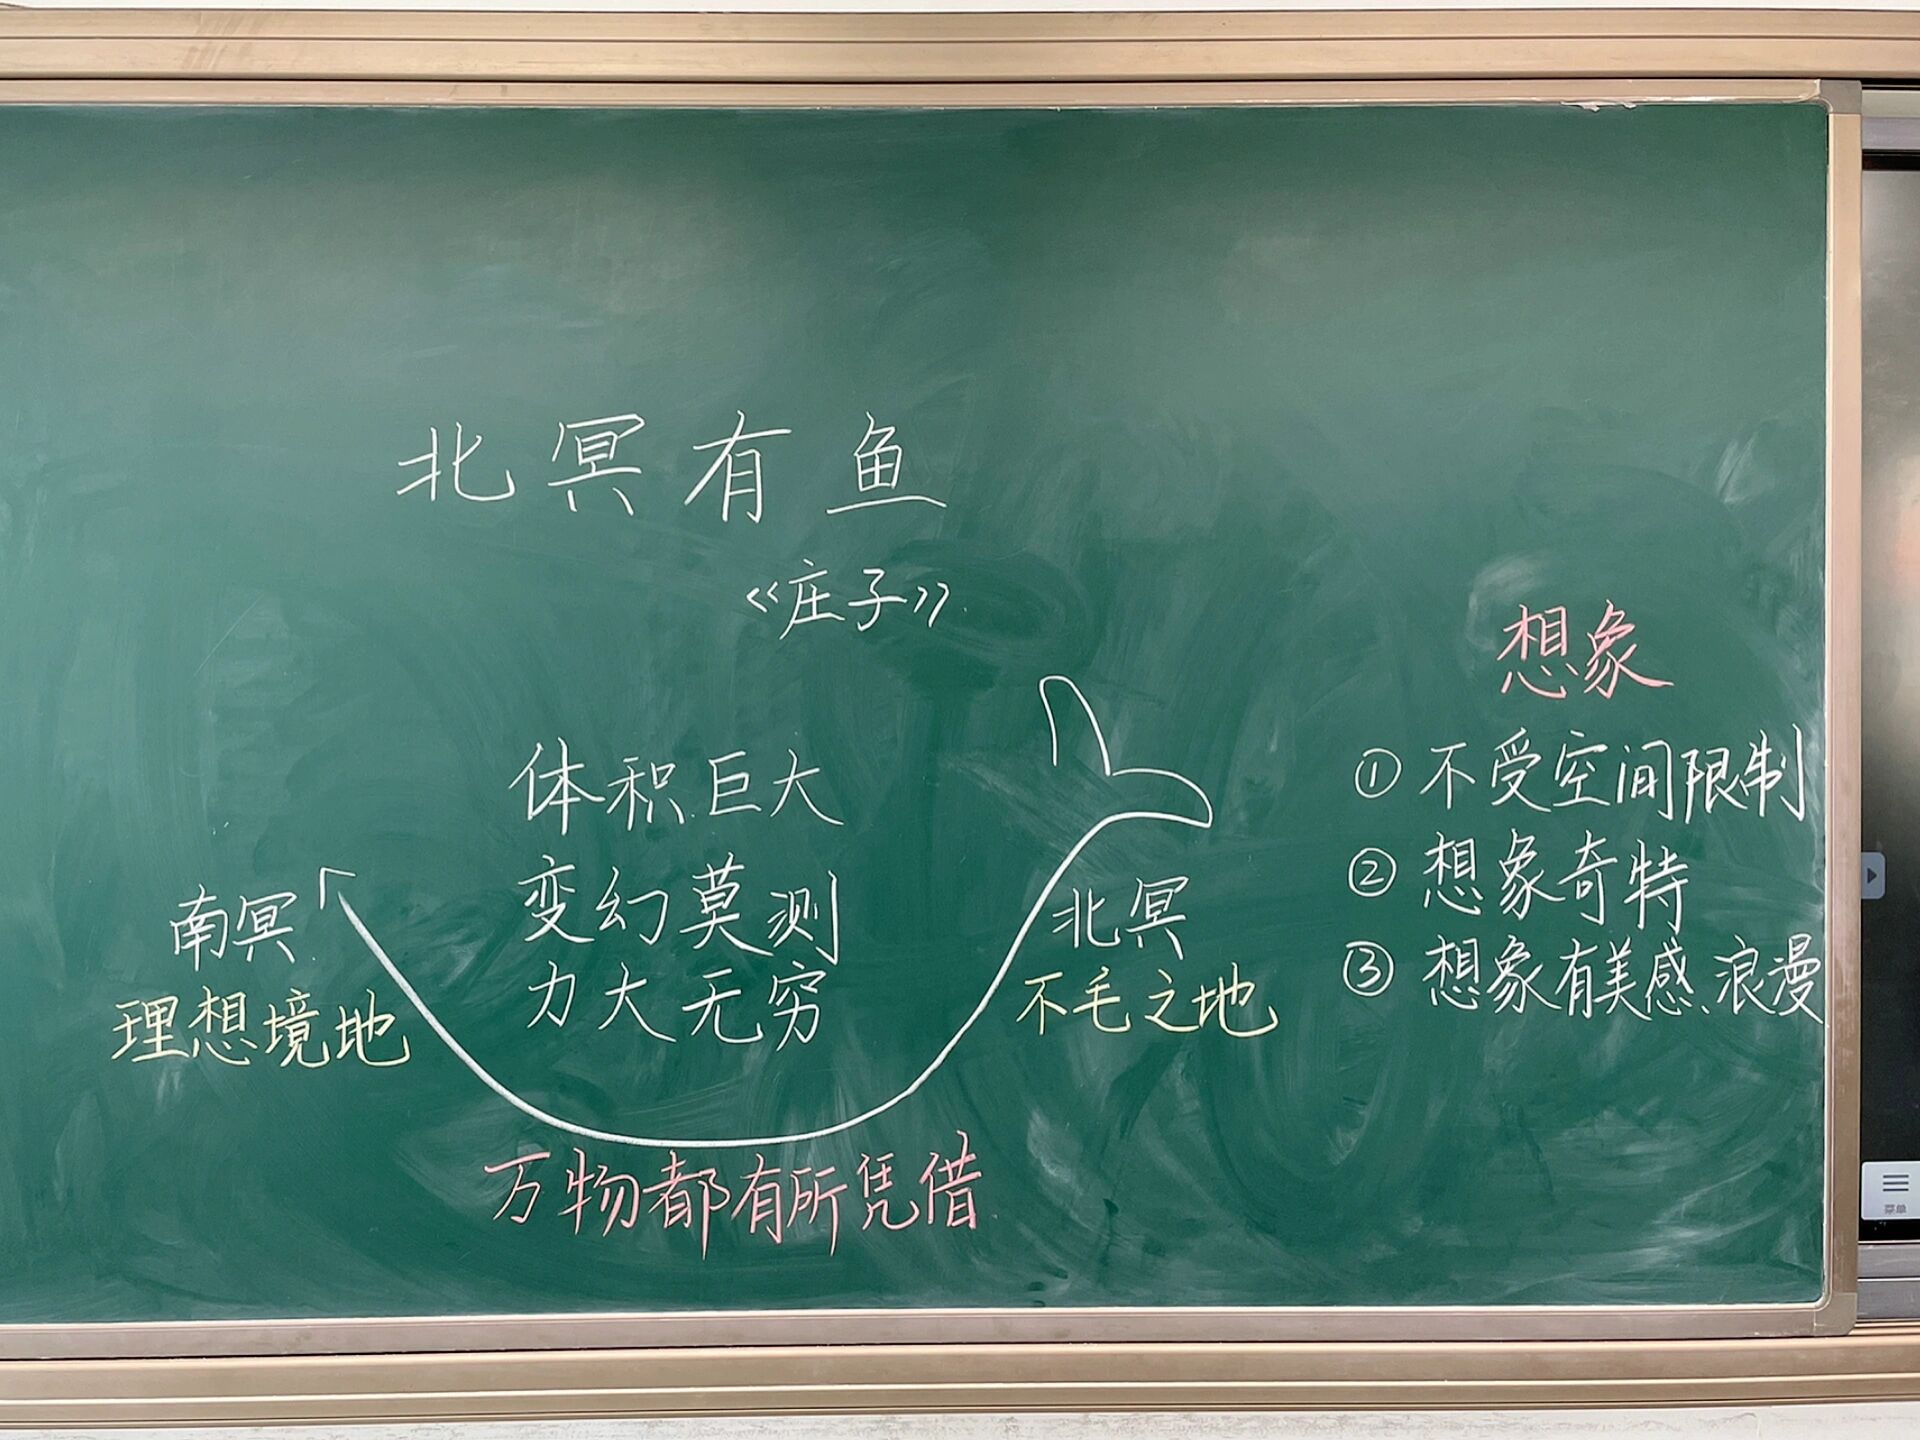 北冥有鱼
《庄子》
体积巨大
变幻莫测
力大无穷
南冥
理想境地
北冥
不毛之地
万物都有所凭借
想象
① 不受空间限制
② 想象奇特
③ 想象有美感、浪漫
菜单